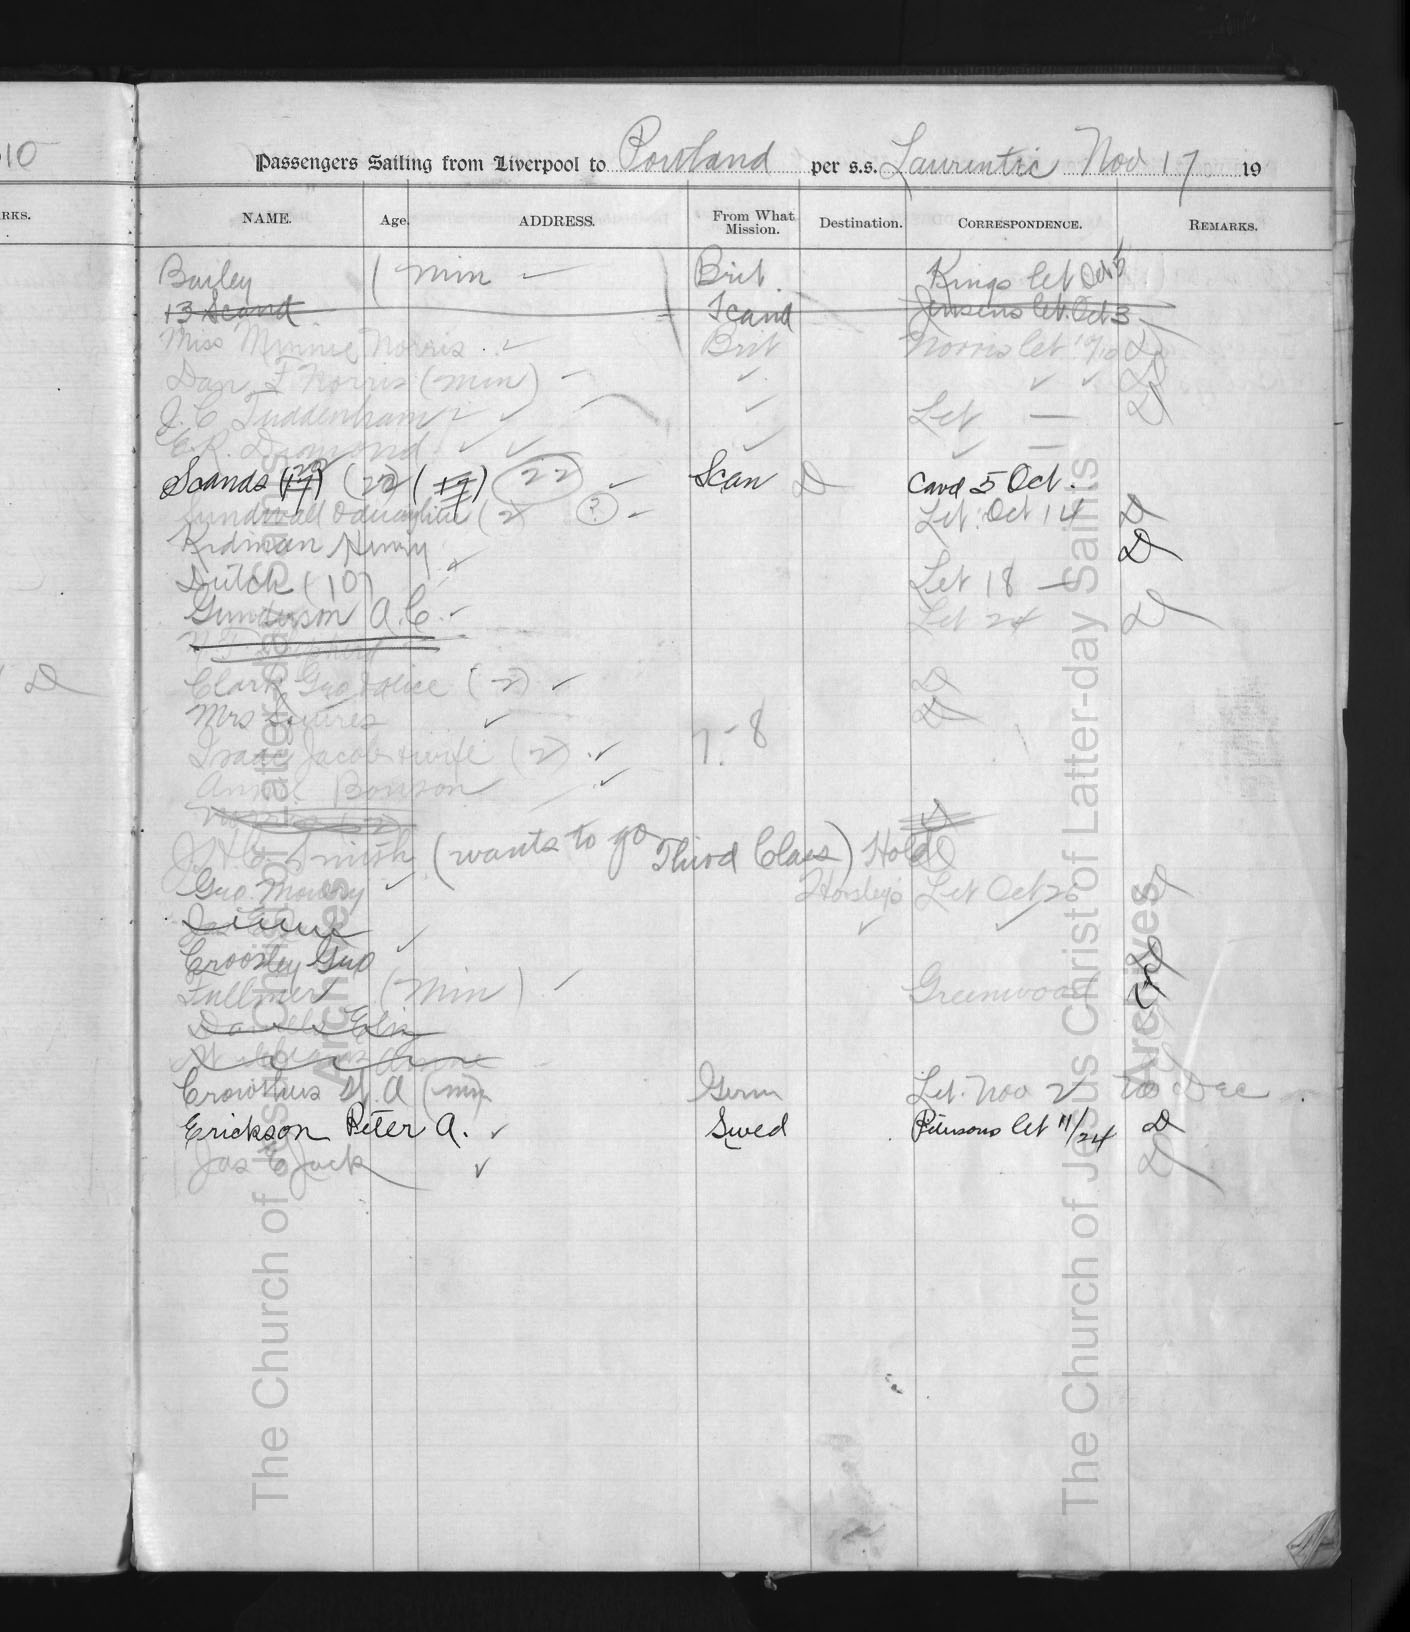 10
Passengers Sailing from Liverpool to Portland per s.s. Laurentic Nov 17 19
RKS. NAME. Age. ADDRESS. From What Mission. Destination. CORRESPONDENCE. REMARKS.
Bailey (min Brit. Kings let Oct 6
13 Scand Scand Jensens let. Oct 3
Miss Minnie Norris Brit Norris let 10/10 D
Dan F Norris (min) D
J. C. Tuddenham Let — D
E. R. Dramond
Scands (22) (17) 22 Scan D Card 5 Oct.
Sundwall & daughter (2) ? Let. Oct 14 D
Erdman Henry D
Dutch (10) Let 18 —
Gunderson A. C. Let 24 D
D
Clark Geo & Alice (2) D
Mrs Squires D
Isaac Jacob & wife (2) 7-8
Annie Bonson
Smith (wants to go Third Class) Hold
Geo. Mowry Horsleys Let Oct 26 D
Croosley Geo D
Fullmer (min) Greenwood
Crowthus (min Germ Let. Nov 2 to Dec
Erickson Peter A. Swed Petersons let 11/24 D
Jas C Jack D
The Church of Jesus Christ of Latter-day Saints
Archives
The Church of Jesus Christ of Latter-day Saints
Archives